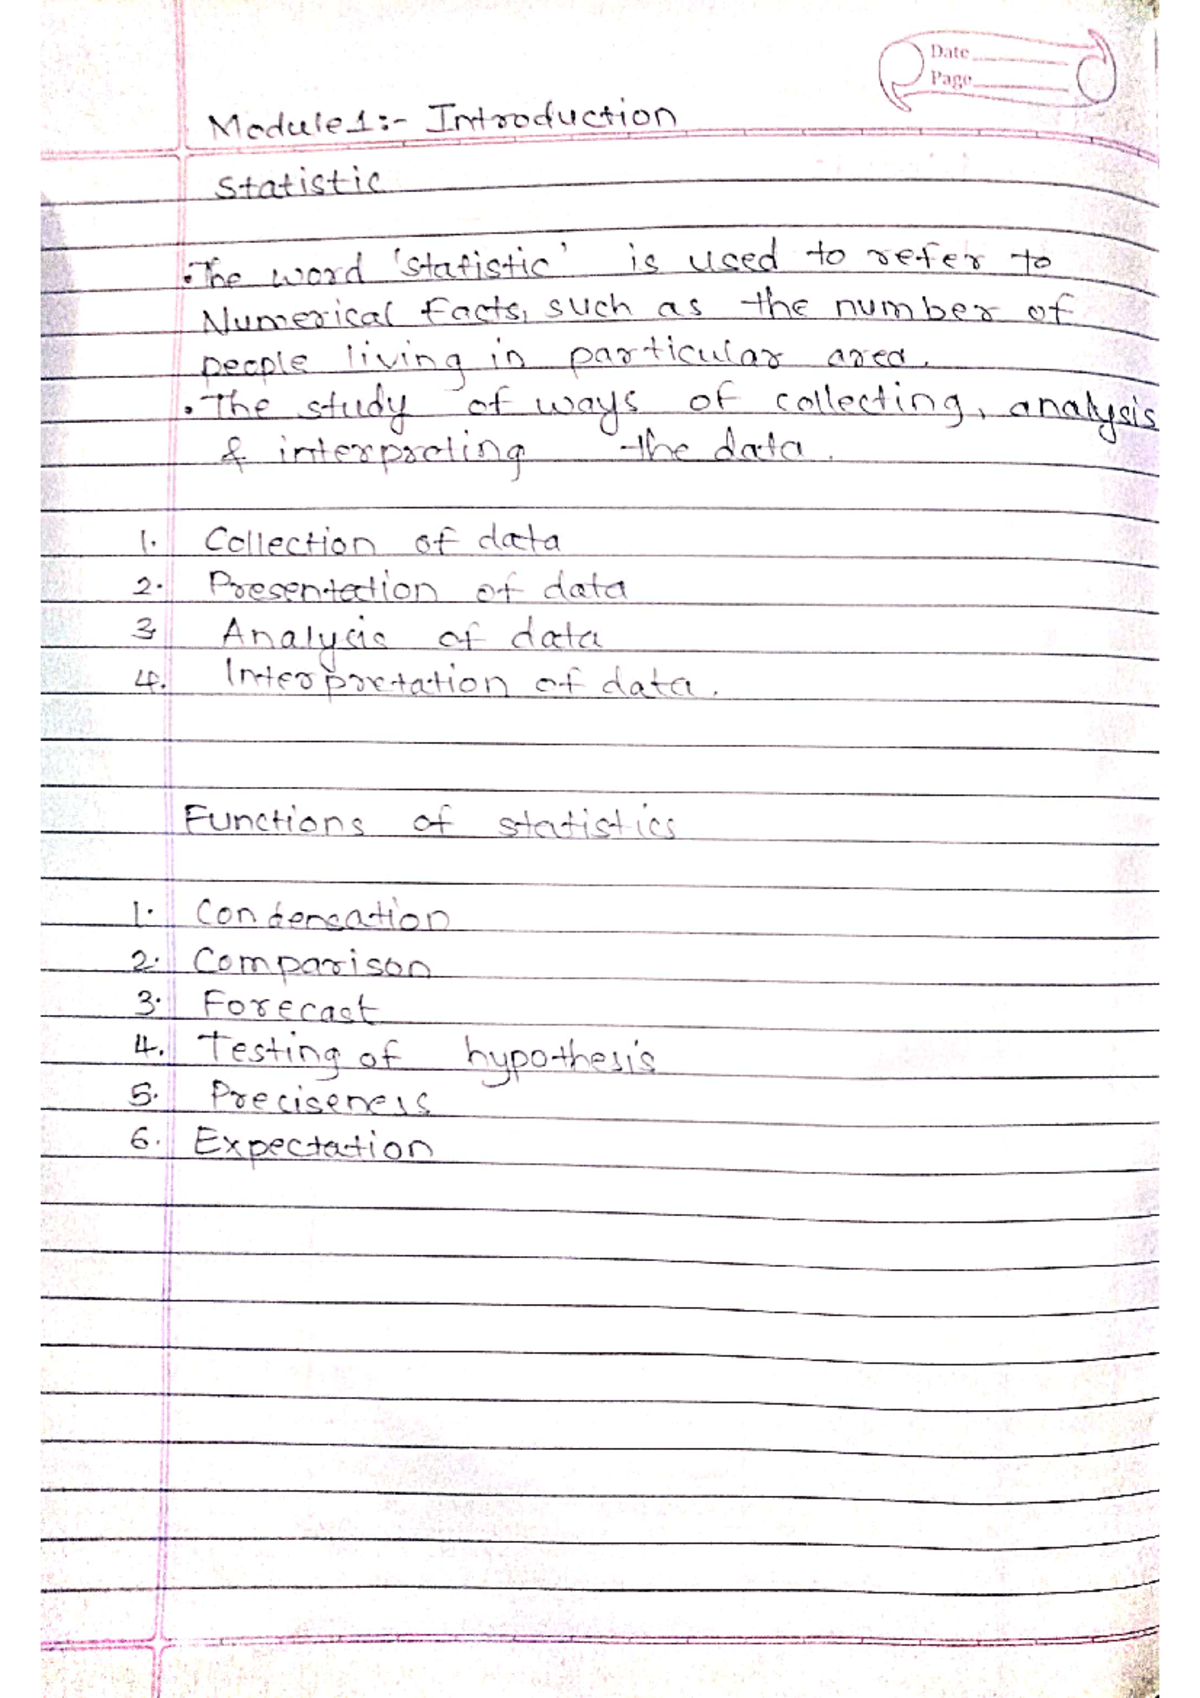 Date
Page
Module 1:- Introduction
Statistic
• The word 'statistic' is used to refer to
Numerical facts, such as the number of
people living in particular area.
• The study of ways of collecting, analysis
& interpreting the data.
1. Collection of data
2. Presentation of data
3. Analysis of data
4. Interpretation of data.
Functions of statistics
1. Condensation
2. Comparison
3. Forecast
4. Testing of hypothesis
5. Preciseness
6. Expectation